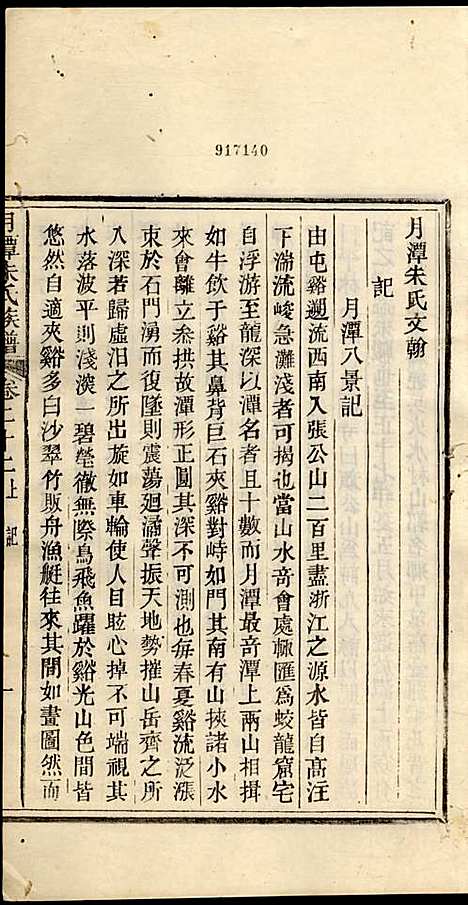 917140
月潭朱氏文翰
記
月潭八景記
由屯谿遡流西南入張公山二百里盡浙江之源水皆自高注
下湍流峻急灘淺者可揭也當山水竒會處輒匯為蛟龍窟宅
自浮游至龍深以潭名者且十數而月潭最竒潭上兩山相揖
如牛飲于谿其鼻背巨石夾谿對峙如門其南有山挾諸小水
來會離立叅拱故潭形正圓其深不可測也每春夏谿流泛漲
束於石門湧而復墜則震蕩廻潏聲振天地勢摧山岳齊之所
入深若歸虛汨之所出旋如車輪使人目眩心掉不可端視其
水落波平則淺渼一碧瑩徹無際鳥飛魚躍於谿光山色間皆
悠然自適夾谿多白沙翠竹販舟漁艇徃來其間如畫圖然而
月潭朱氏族譜
卷二十二上
記
一